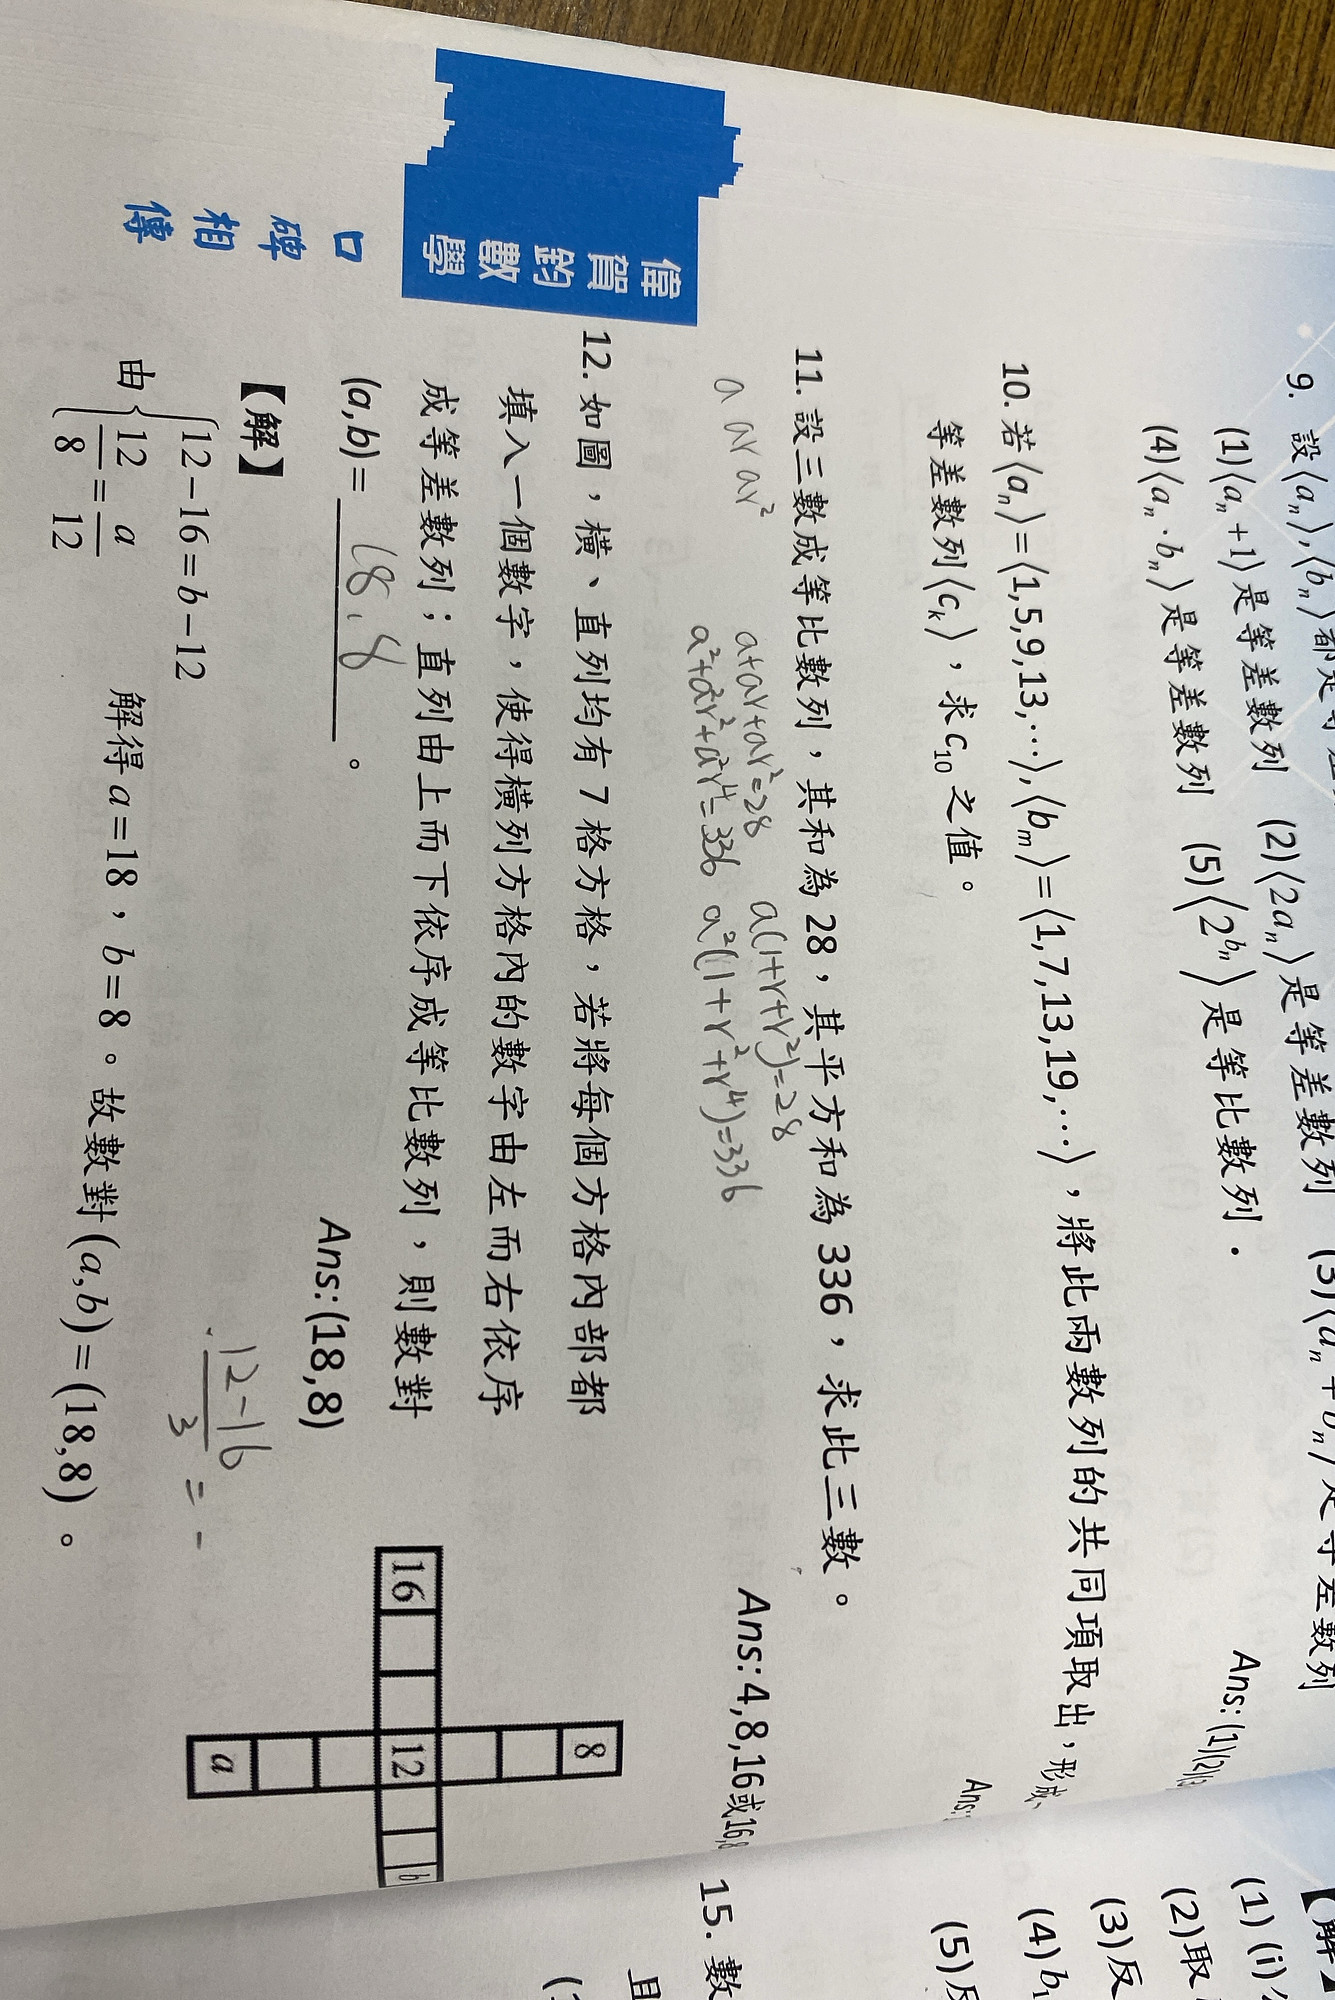 9. 設⟨aₙ⟩,⟨bₙ⟩都是等差
(1)⟨aₙ+1⟩是等差數列 (2)⟨2aₙ⟩是等差數列 (3)⟨aₙ+bₙ⟩是等差數列
(4)⟨aₙ·bₙ⟩是等差數列 (5)⟨2^{bₙ}⟩是等比數列.
Ans: (1)(2)(3
10. 若⟨aₙ⟩=⟨1,5,9,13,⋯⟩,⟨bₘ⟩=⟨1,7,13,19,⋯⟩,將此兩數列的共同項取出,形成一
等差數列⟨cₖ⟩,求c₁₀之值。
Ans:
11. 設三數成等比數列,其和為28,其平方和為336,求此三數。
Ans: 4,8,16或16,8
a ar ar²
a+ar+ar²=28 a(1+r+r²)=28
a²+a²r²+a²r⁴=336 a²(1+r²+r⁴)=336
12. 如圖,橫、直列均有7格方格,若將每個方格內部都
填入一個數字,使得橫列方格內的數字由左而右依序
成等差數列;直列由上而下依序成等比數列,則數對
(a,b)= 18.8 。
Ans: (18,8)
8
16 12 b
a
【解】
由{12−16=b−12
12/8=a/12
解得a=18,b=8。故數對(a,b)=(18,8)。
12-16/3 = -
偉賀鈞數學
口碑相傳
【解】
(1)(i)
(2)取
(3)反
(4)b₁
(5)反
15. 數
且